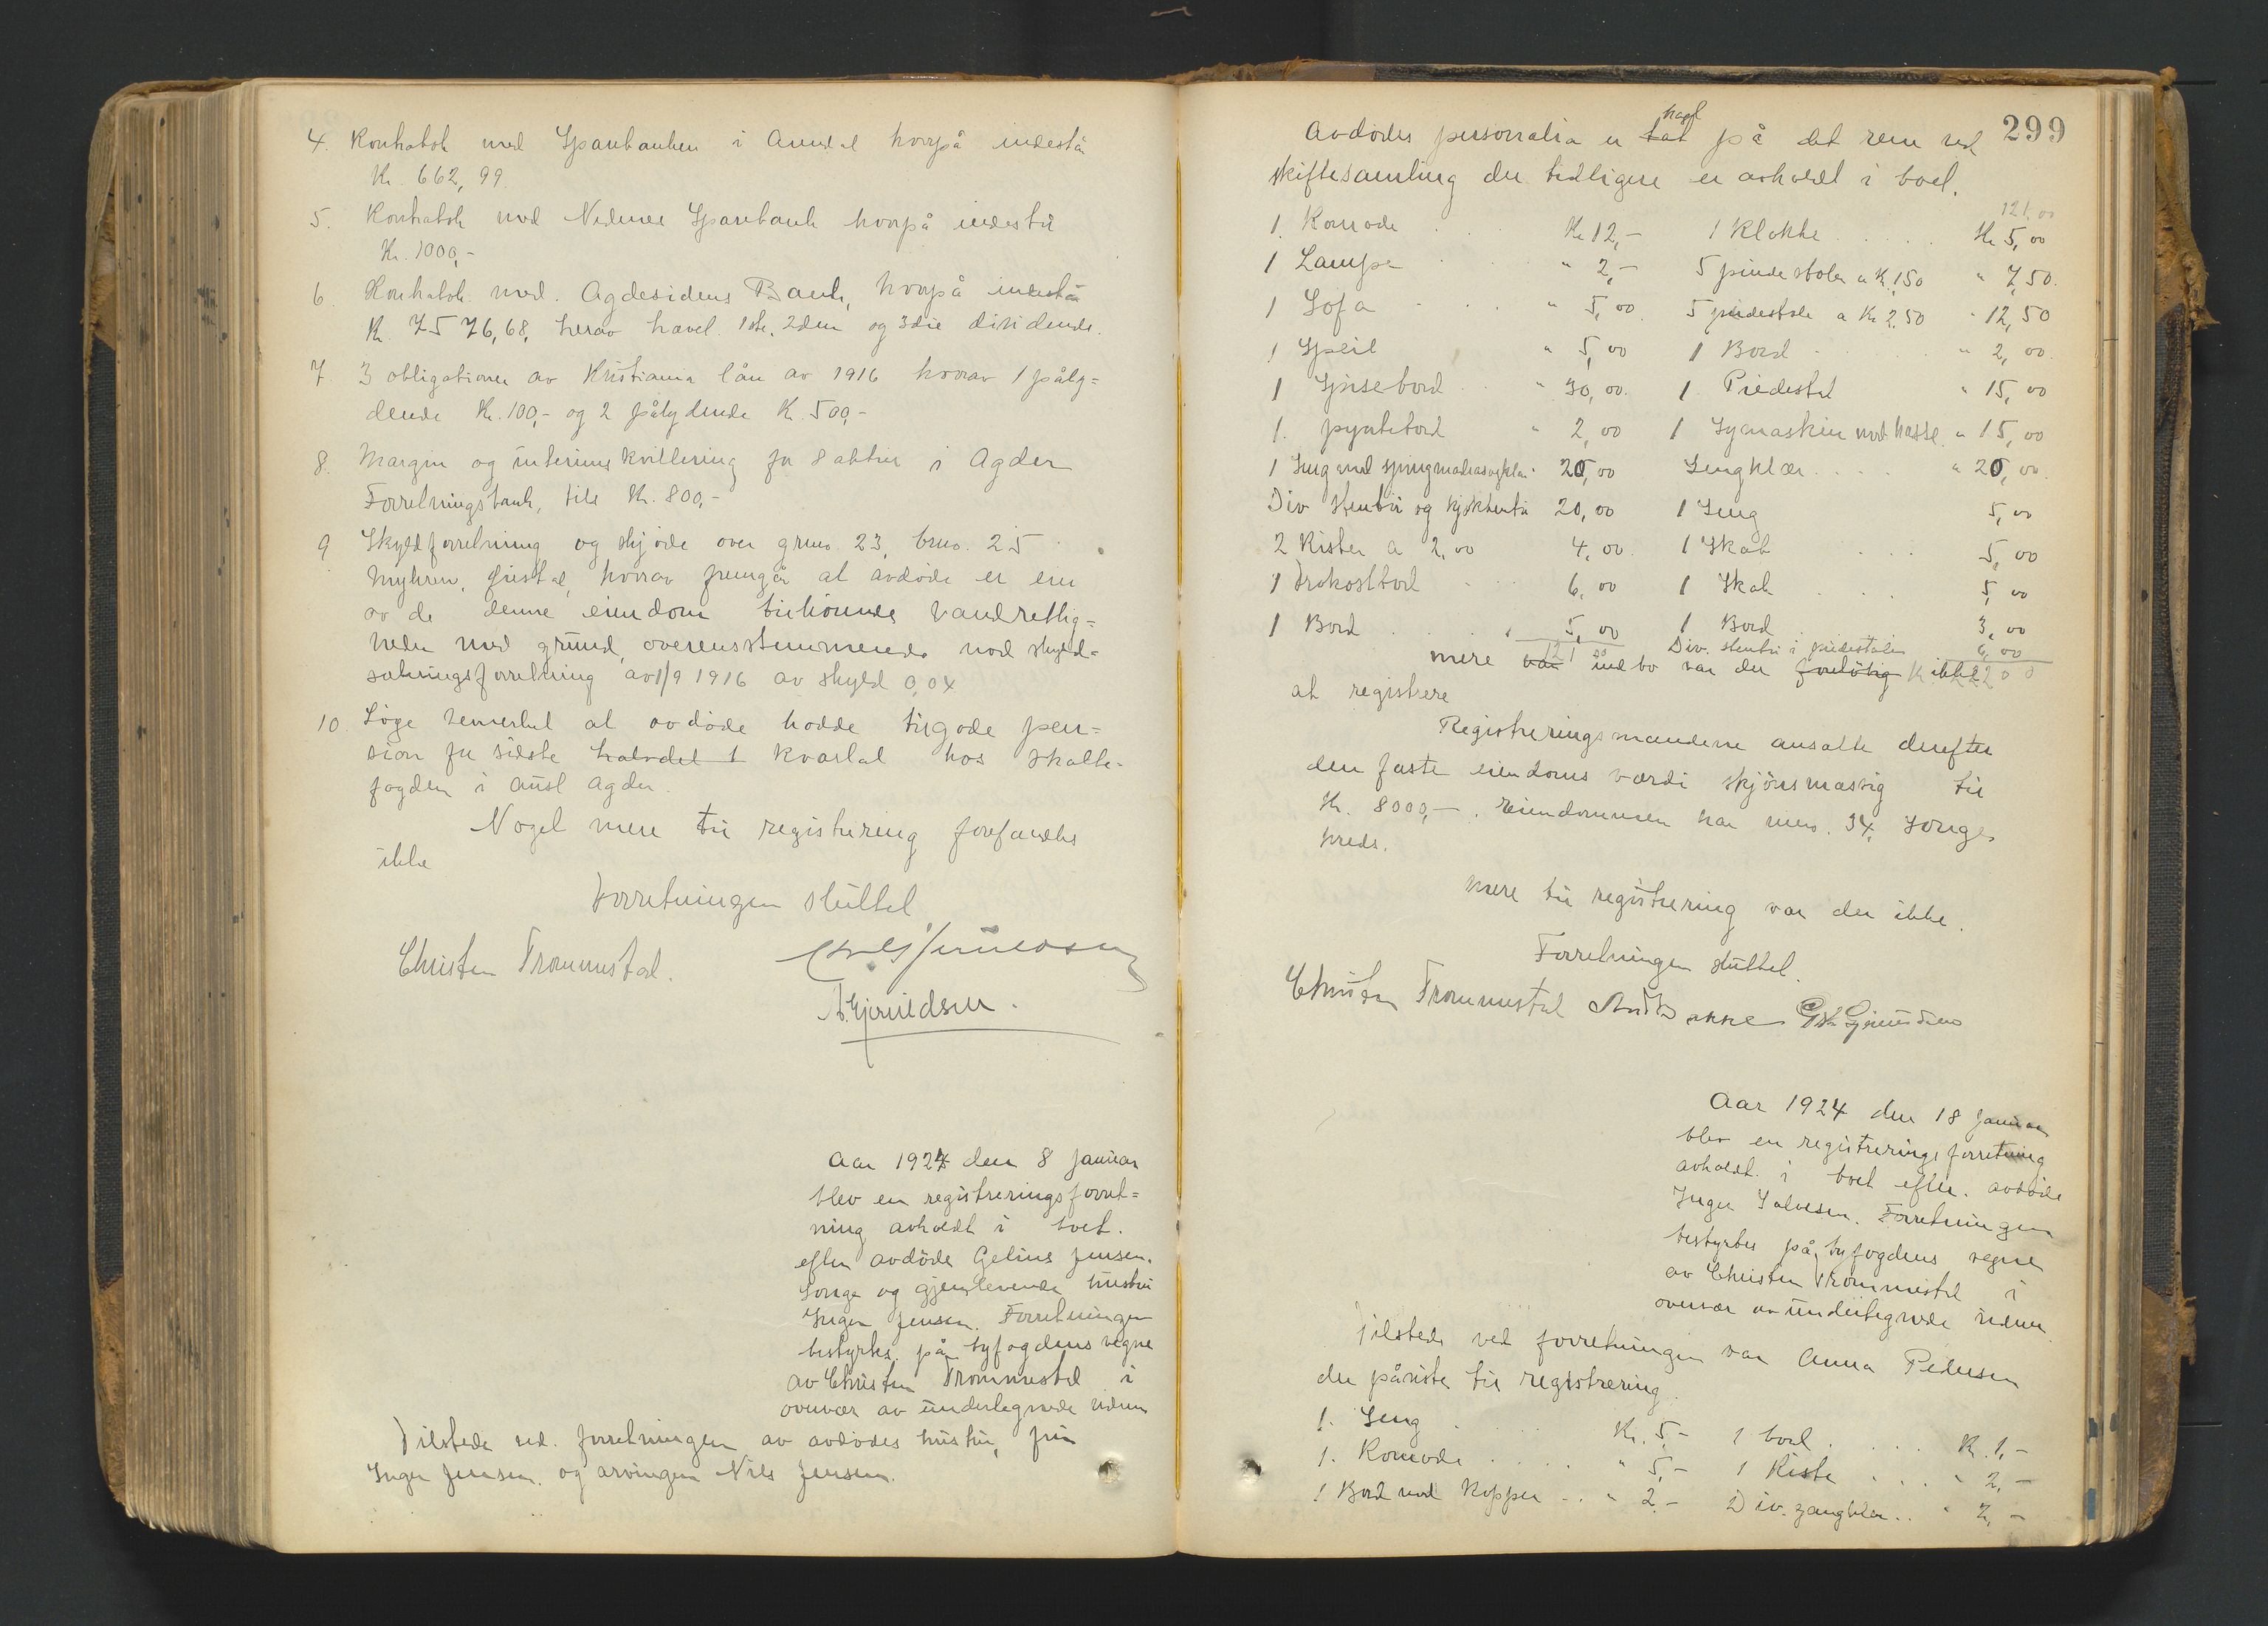 4. Kontrabok med Sparebanken i Arendal hvorpå indestå
Kr. 662,99
5. Kontrabok med Nedenes Sparebank hvorpå indestår
Kr. 1000,-
6. Kontrabok med Agdesidens Bank, hvorpå indestå
Kr. 7576,68, herav hævet 1ste, 2den og 3die dividende.
7 3 obligationer av Kristiania lån av 1916 hvorav 1 påly=
dende Kr. 100,- og 2 pålydende Kr. 500,-
8. Margin og interimskvittering for 8 aktier i Agder
Forretningsbank, tils Kr. 800,-
9 Skyldforretning og skjøde over grno. 23, brno. 25
Myhren, hvorav fremgår at avdøde er en
av de denne eiendom tilhørende vandrettig=
heder med grund, overensstemmende med skyld=
sætningsforretning av 1/9 1916 av skyld 0,04
10 Løge bemerket at avdøde hadde tilgode pen=
sion for sidste halvdel 1 kvartal hos skatte-
fogden i Aust Agder.
Noget mere til registrering forefandtes
ikke
Forretningen sluttet
Christen Trommestad.
A. Gjeruldsen.
Aar 1924 den 8 Januar
blev en registreringsforret=
ning avholdt i boet
efter avdøde Gelius Jensen.
Songe og gjenlevende hustru
Inger Jensen. Forretningen
bestyrtes på byfogdens vegne
av Christen Trommestad i
overvær av undertegnede vidner
Tilstede ved forretningen av avdødes hustru, fru
Inger Jensen og arvingen Nils Jensen.
299
Avdødes personalia er tat hapt på det rene ved
skiftesamling der tidligere er avholdt i boet.
121,00
1. Komode . . . Kr 12,- 1 Klokke . . . . . Kr 5,00
1 Lampe . . . " 2,- 5 pindestoler a Kr. 1,50 " 7,50.
1 Sofa . . . " 5,00 5 pindestole a Kr 2,50 " 12,50
1 Speil " 5,00 1 Bord . . . " 2,00.
1 Spisebord . . " 30,00. 1 Piedestal " 15,00
1. pyntebord " 2,00 1 Symaskin med kasse. " 15,00
1 Seng med springmadras og klær 20,00 Sengklær . . . . " 20,00.
Div Stentøi og kjøkkentøi 20,00 1 Seng 5,00
2 Kister a 2,00 4,00. 1 Skab . . . 5,00
1 Frokostbord . . . 6,00 1 Skab . . . 5,00
1 Bord . . . . 5,00 1 Bord 3,00
121 00 Div. stentøi i piedestalen 6,00
mere var indbo var der foreløbig ikke Kr. 222 00
at registrere
Registreringsmændene ansatte derefter
den faste eiendoms værdi skjønsmæssig til
Kr. 8000,-. Eiendommen har mno. 34, Songe
kreds.
Mere til registrering var der ikke.
Forretningen sluttet.
Christen Trommestad
Aar 1924 den 18 Januar
blev en registreringsforretning
avholdt i boet efter avdøde
Inger Salvesen. Forretningen
bestyrtes på byfogdens vegne
av Christen Trommestad i
overvær av undertegnede vidner.
Tilstede ved forretningen var Anna Pedersen
der påviste til registrering.
1. Seng . . . Kr. 5,- 1 bord . . . . Kr. 1,-
1. Komode . . . . " 5,- 1 Kiste . . . " 2,-
1 Bord med Kopper . . " 2,- Div. gangklær . . " 2,-